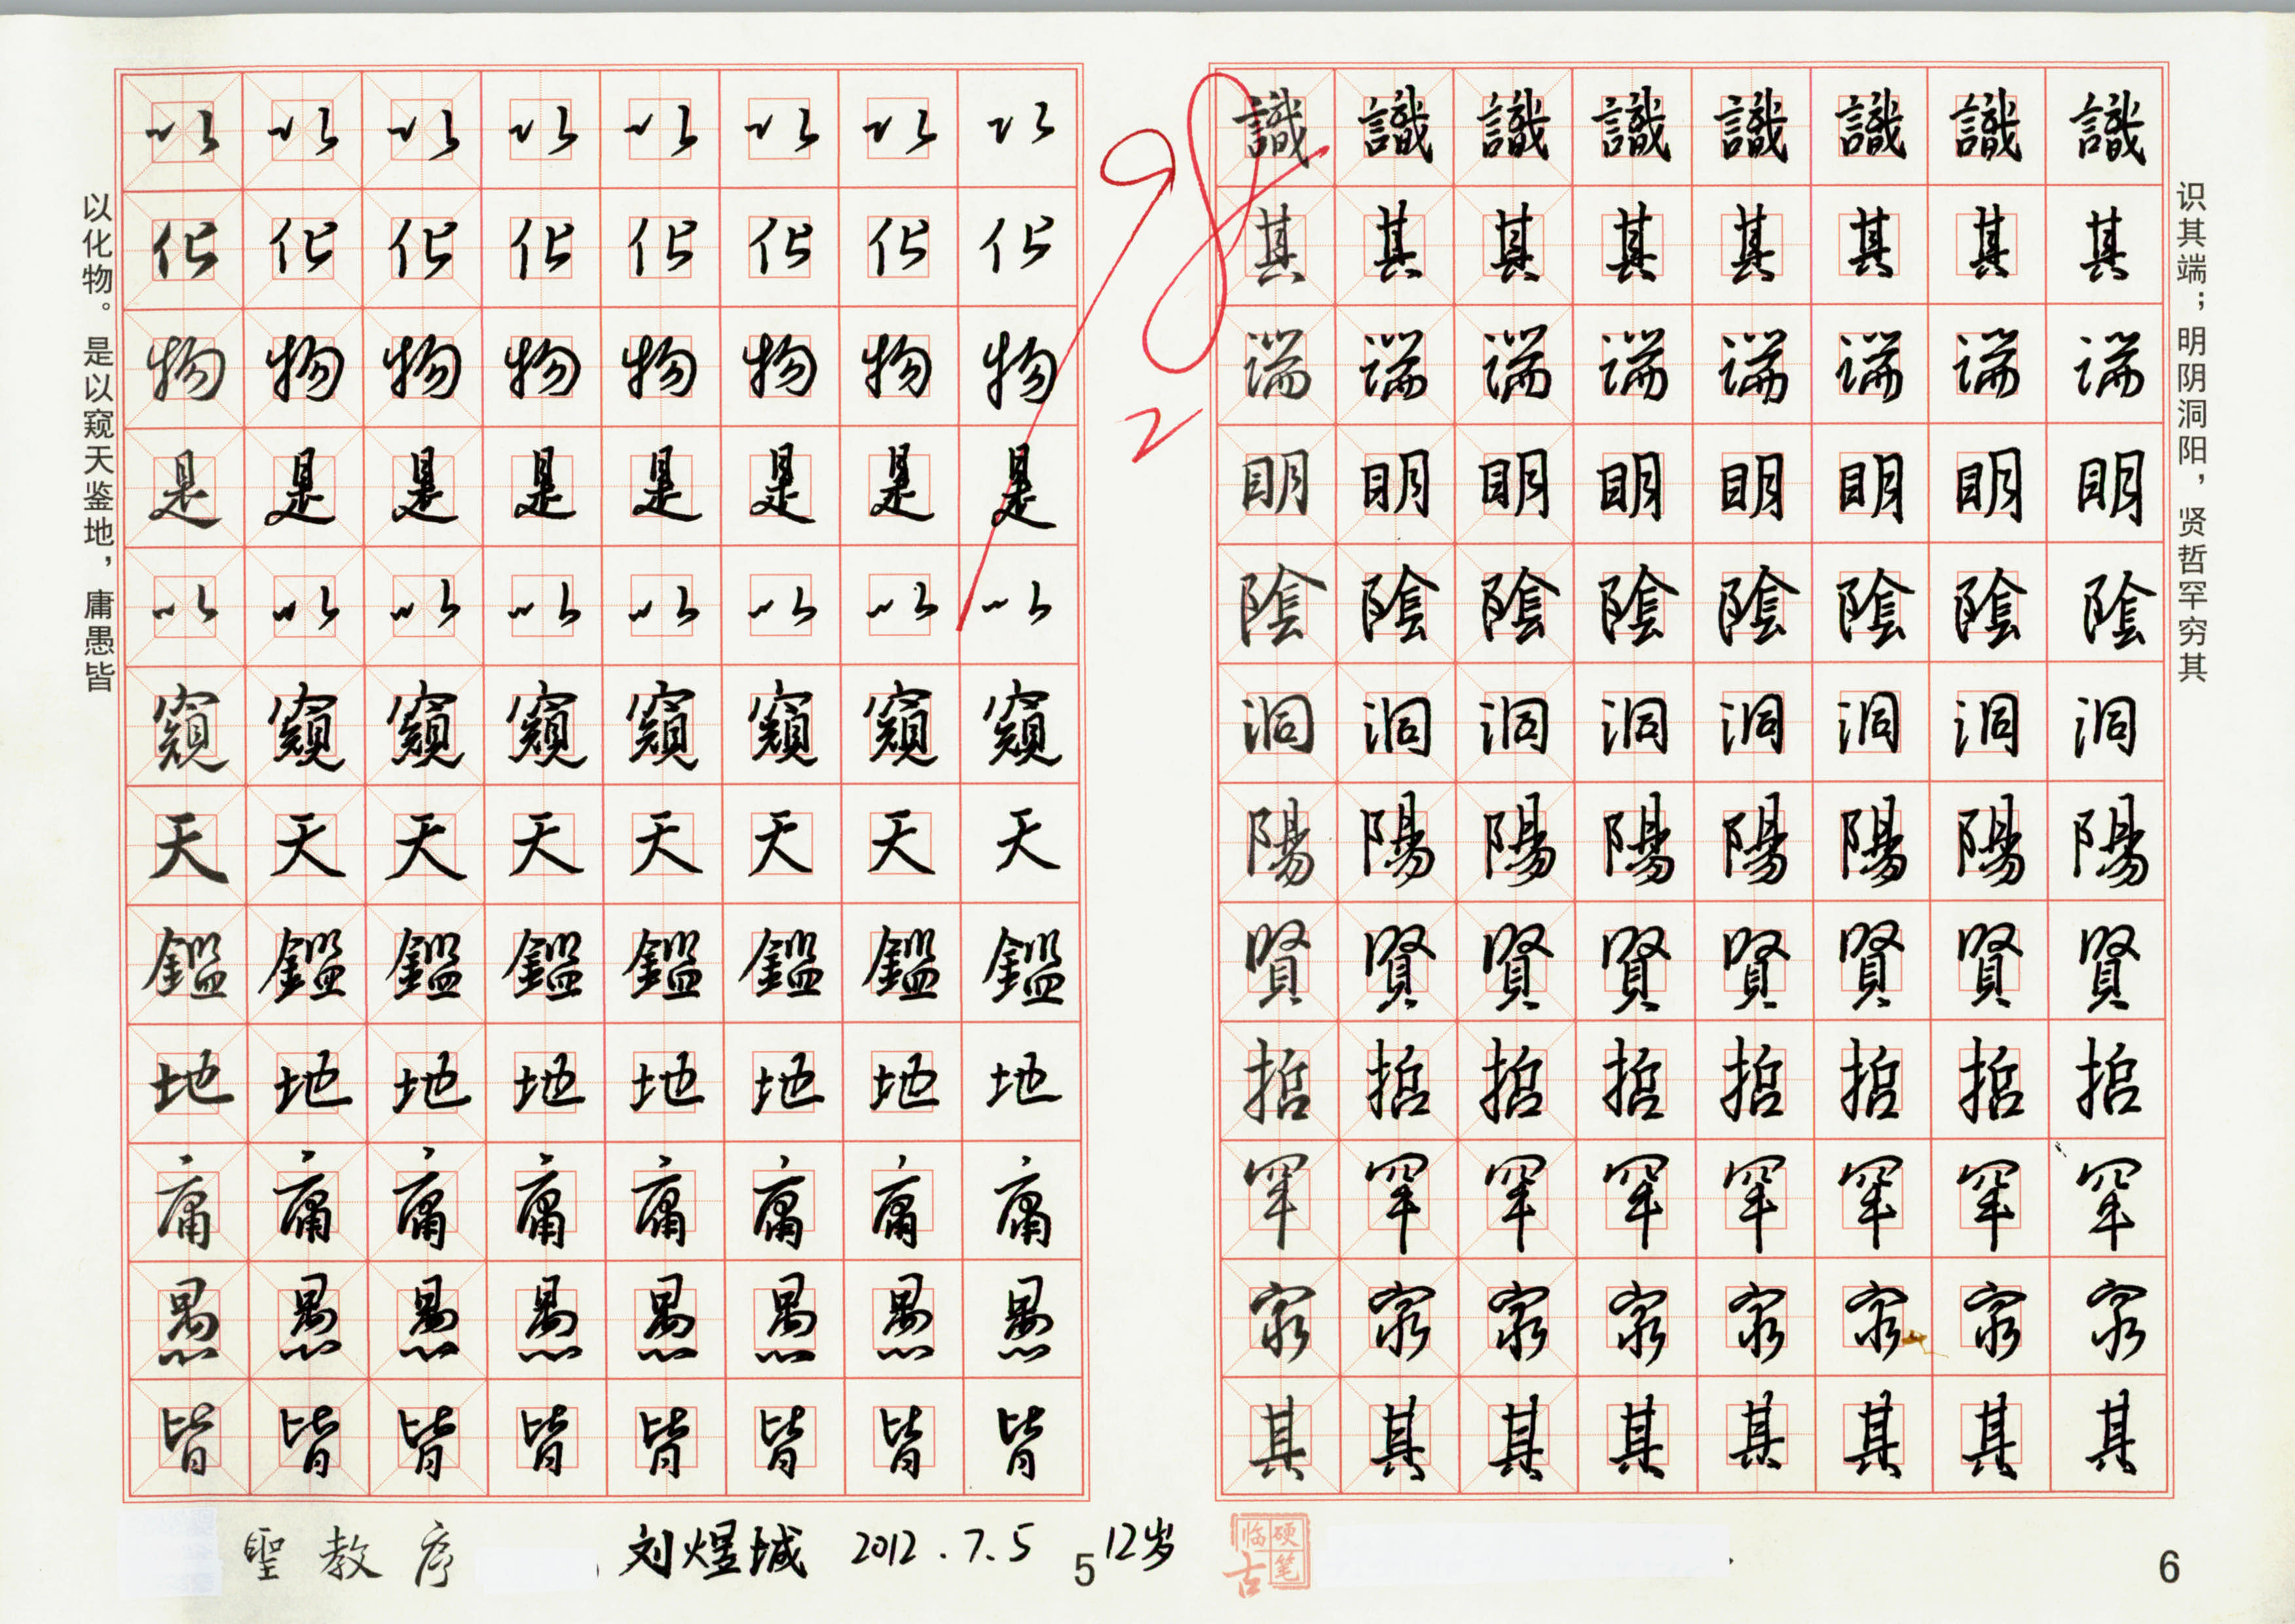 以化物。是以窥天鉴地，庸愚皆
以以以以以以以以
化化化化化化化化
物物物物物物物物
是是是是是是是是
以以以以以以以以
窺窺窺窺窺窺窺窺
天天天天天天天天
鑑鑑鑑鑑鑑鑑鑑鑑
地地地地地地地地
庸庸庸庸庸庸庸庸
愚愚愚愚愚愚愚愚
皆皆皆皆皆皆皆皆
聖教序
刘煜城 2012.7.5 12岁
5
98
2
識識識識識識識識
其其其其其其其其
端端端端端端端端
明明明明明明明明
陰陰陰陰陰陰陰陰
洞洞洞洞洞洞洞洞
陽陽陽陽陽陽陽陽
賢賢賢賢賢賢賢賢
哲哲哲哲哲哲哲哲
罕罕罕罕罕罕罕罕
窮窮窮窮窮窮窮窮
其其其其其其其其
识其端；明阴洞阳，贤哲罕穷其
硬笔临古
6